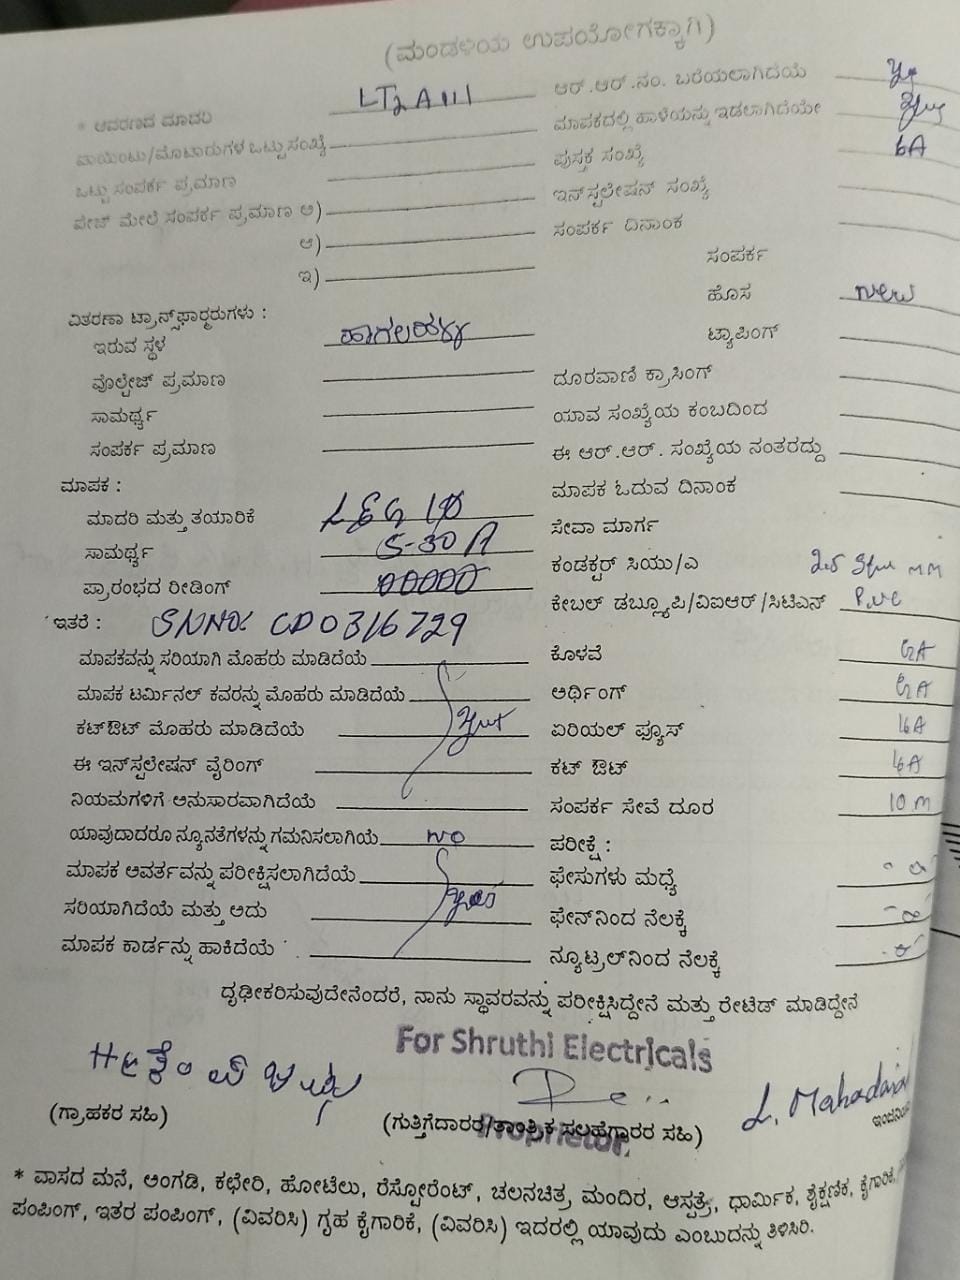 (ಮಂಡಳಿಯ ಉಪಯೋಗಕ್ಕಾಗಿ)
* ಆವರಣದ ಮಾದರಿ LT2A111 ಆರ್.ಆರ್.ನಂ. ಬರೆಯಲಾಗಿದೆಯೆ
ಪಾಯಿಂಟು/ಮೊಟಾರುಗಳ ಒಟ್ಟು ಸಂಖ್ಯೆ ಮಾಪಕದಲ್ಲಿ ಹಾಳೆಯನ್ನು ಇಡಲಾಗಿದೆಯೇ
ಒಟ್ಟು ಸಂಪರ್ಕ ಪ್ರಮಾಣ ಪುಸ್ತಕ ಸಂಖ್ಯೆ 6A
ಪೇಜ್ ಮೇಲೆ ಸಂಪರ್ಕ ಪ್ರಮಾಣ ಅ) ಇನ್‌ಸ್ಟಲೇಷನ್ ಸಂಖ್ಯೆ
ಆ) ಸಂಪರ್ಕ ದಿನಾಂಕ
ಇ) ಸಂಪರ್ಕ
ವಿತರಣಾ ಟ್ರಾನ್ಸ್‌ಫಾರ್‍ಮರುಗಳು : ಹೊಸ new
ಇರುವ ಸ್ಥಳ ಟ್ಯಾಪಿಂಗ್
ವೊಲ್ಟೇಜ್ ಪ್ರಮಾಣ ದೂರವಾಣಿ ಕ್ರಾಸಿಂಗ್
ಸಾಮರ್ಥ್ಯ ಯಾವ ಸಂಖ್ಯೆಯ ಕಂಬದಿಂದ
ಸಂಪರ್ಕ ಪ್ರಮಾಣ ಈ ಆರ್.ಆರ್. ಸಂಖ್ಯೆಯ ನಂತರದ್ದು
ಮಾಪಕ : ಮಾಪಕ ಓದುವ ದಿನಾಂಕ
ಮಾದರಿ ಮತ್ತು ತಯಾರಿಕೆ L&G 1Ø ಸೇವಾ ಮಾರ್ಗ
ಸಾಮರ್ಥ್ಯ 5-30 A ಕಂಡಕ್ಟರ್ ಸಿಯು/ಎ 2.5 mm
ಪ್ರಾರಂಭದ ರೀಡಿಂಗ್ 00000 ಕೇಬಲ್ ಡಬ್ಲ್ಯೂಪಿ/ವಿಐಆರ್/ಸಿಟಿಎಸ್ P.V.C
ಇತರೆ : SNNO: CD0316729
ಮಾಪಕವನ್ನು ಸರಿಯಾಗಿ ಮೊಹರು ಮಾಡಿದೆಯೆ ಕೊಳವೆ
ಮಾಪಕ ಟರ್ಮಿನಲ್ ಕವರನ್ನು ಮೊಹರು ಮಾಡಿದೆಯೆ ಅರ್ಥಿಂಗ್
ಕಟ್‌ಔಟ್ ಮೊಹರು ಮಾಡಿದೆಯೆ ಏರಿಯಲ್ ಫ್ಯೂಸ್ 16A
ಈ ಇನ್‌ಸ್ಟಲೇಷನ್ ವೈರಿಂಗ್ ಕಟ್ ಔಟ್ 16A
ನಿಯಮಗಳಿಗೆ ಅನುಸಾರವಾಗಿದೆಯೆ ಸಂಪರ್ಕ ಸೇವೆ ದೂರ 10 m
ಯಾವುದಾದರೂ ನ್ಯೂನತೆಗಳನ್ನು ಗಮನಿಸಲಾಗಿಯೆ NO ಪರೀಕ್ಷೆ :
ಮಾಪಕ ಆವರ್ತವನ್ನು ಪರೀಕ್ಷಿಸಲಾಗಿದೆಯೆ ಫೇಸುಗಳು ಮಧ್ಯೆ
ಸರಿಯಾಗಿದೆಯೆ ಮತ್ತು ಅದು ಫೇಸ್‌ನಿಂದ ನೆಲಕ್ಕೆ
ಮಾಪಕ ಕಾರ್ಡನ್ನು ಹಾಕಿದೆಯೆ ನ್ಯೂಟ್ರಲ್‌ನಿಂದ ನೆಲಕ್ಕೆ
ದೃಢೀಕರಿಸುವುದೇನೆಂದರೆ, ನಾನು ಸ್ಥಾವರವನ್ನು ಪರೀಕ್ಷಿಸಿದ್ದೇನೆ ಮತ್ತು ರೇಟೆಡ್ ಮಾಡಿದ್ದೇನೆ
For Shruthi Electricals
L. Mahadaia
(ಗ್ರಾಹಕರ ಸಹಿ) (ಗುತ್ತಿಗೆದಾರರ/ತಾಂತ್ರಿಕ ಸಲಹೆಗಾರರ ಸಹಿ)
Proprietor.
* ವಾಸದ ಮನೆ, ಅಂಗಡಿ, ಕಛೇರಿ, ಹೋಟೆಲು, ರೆಸ್ಟೋರೆಂಟ್, ಚಲನಚಿತ್ರ ಮಂದಿರ, ಆಸ್ಪತ್ರೆ, ಧಾರ್ಮಿಕ, ಶೈಕ್ಷಣಿಕ, ಕೈಗಾರಿಕೆ,
ಪಂಪಿಂಗ್, ಇತರ ಪಂಪಿಂಗ್, (ವಿವರಿಸಿ) ಗೃಹ ಕೈಗಾರಿಕೆ, (ವಿವರಿಸಿ) ಇದರಲ್ಲಿ ಯಾವುದು ಎಂಬುದನ್ನು ತಿಳಿಸಿರಿ.